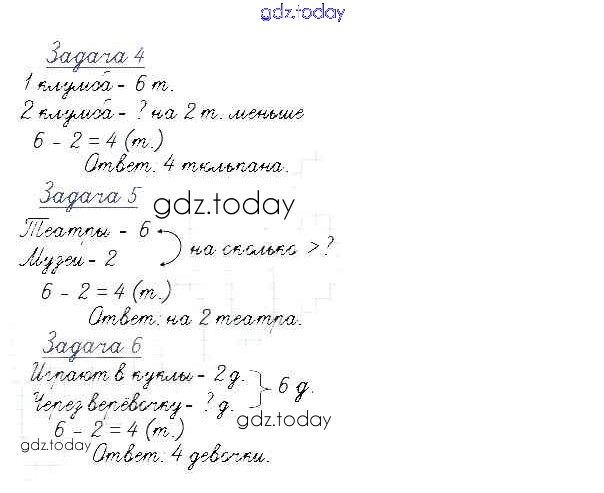 gdz.today
Задача 4
1 клумба - 6 т.
2 клумба - ? на 2 т. меньше
6 - 2 = 4 (т.)
Ответ: 4 тюльпана.
Задача 5
gdz.today
Театры - 6
Музеи - 2
на сколько > ?
6 - 2 = 4 (т.)
Ответ: на 2 театра.
Задача 6
Играют в куклы - 2 д.
Через верёвочку - ? д.
6 д.
gdz.today
6 - 2 = 4 (т.)
gdz.today
Ответ: 4 девочки.